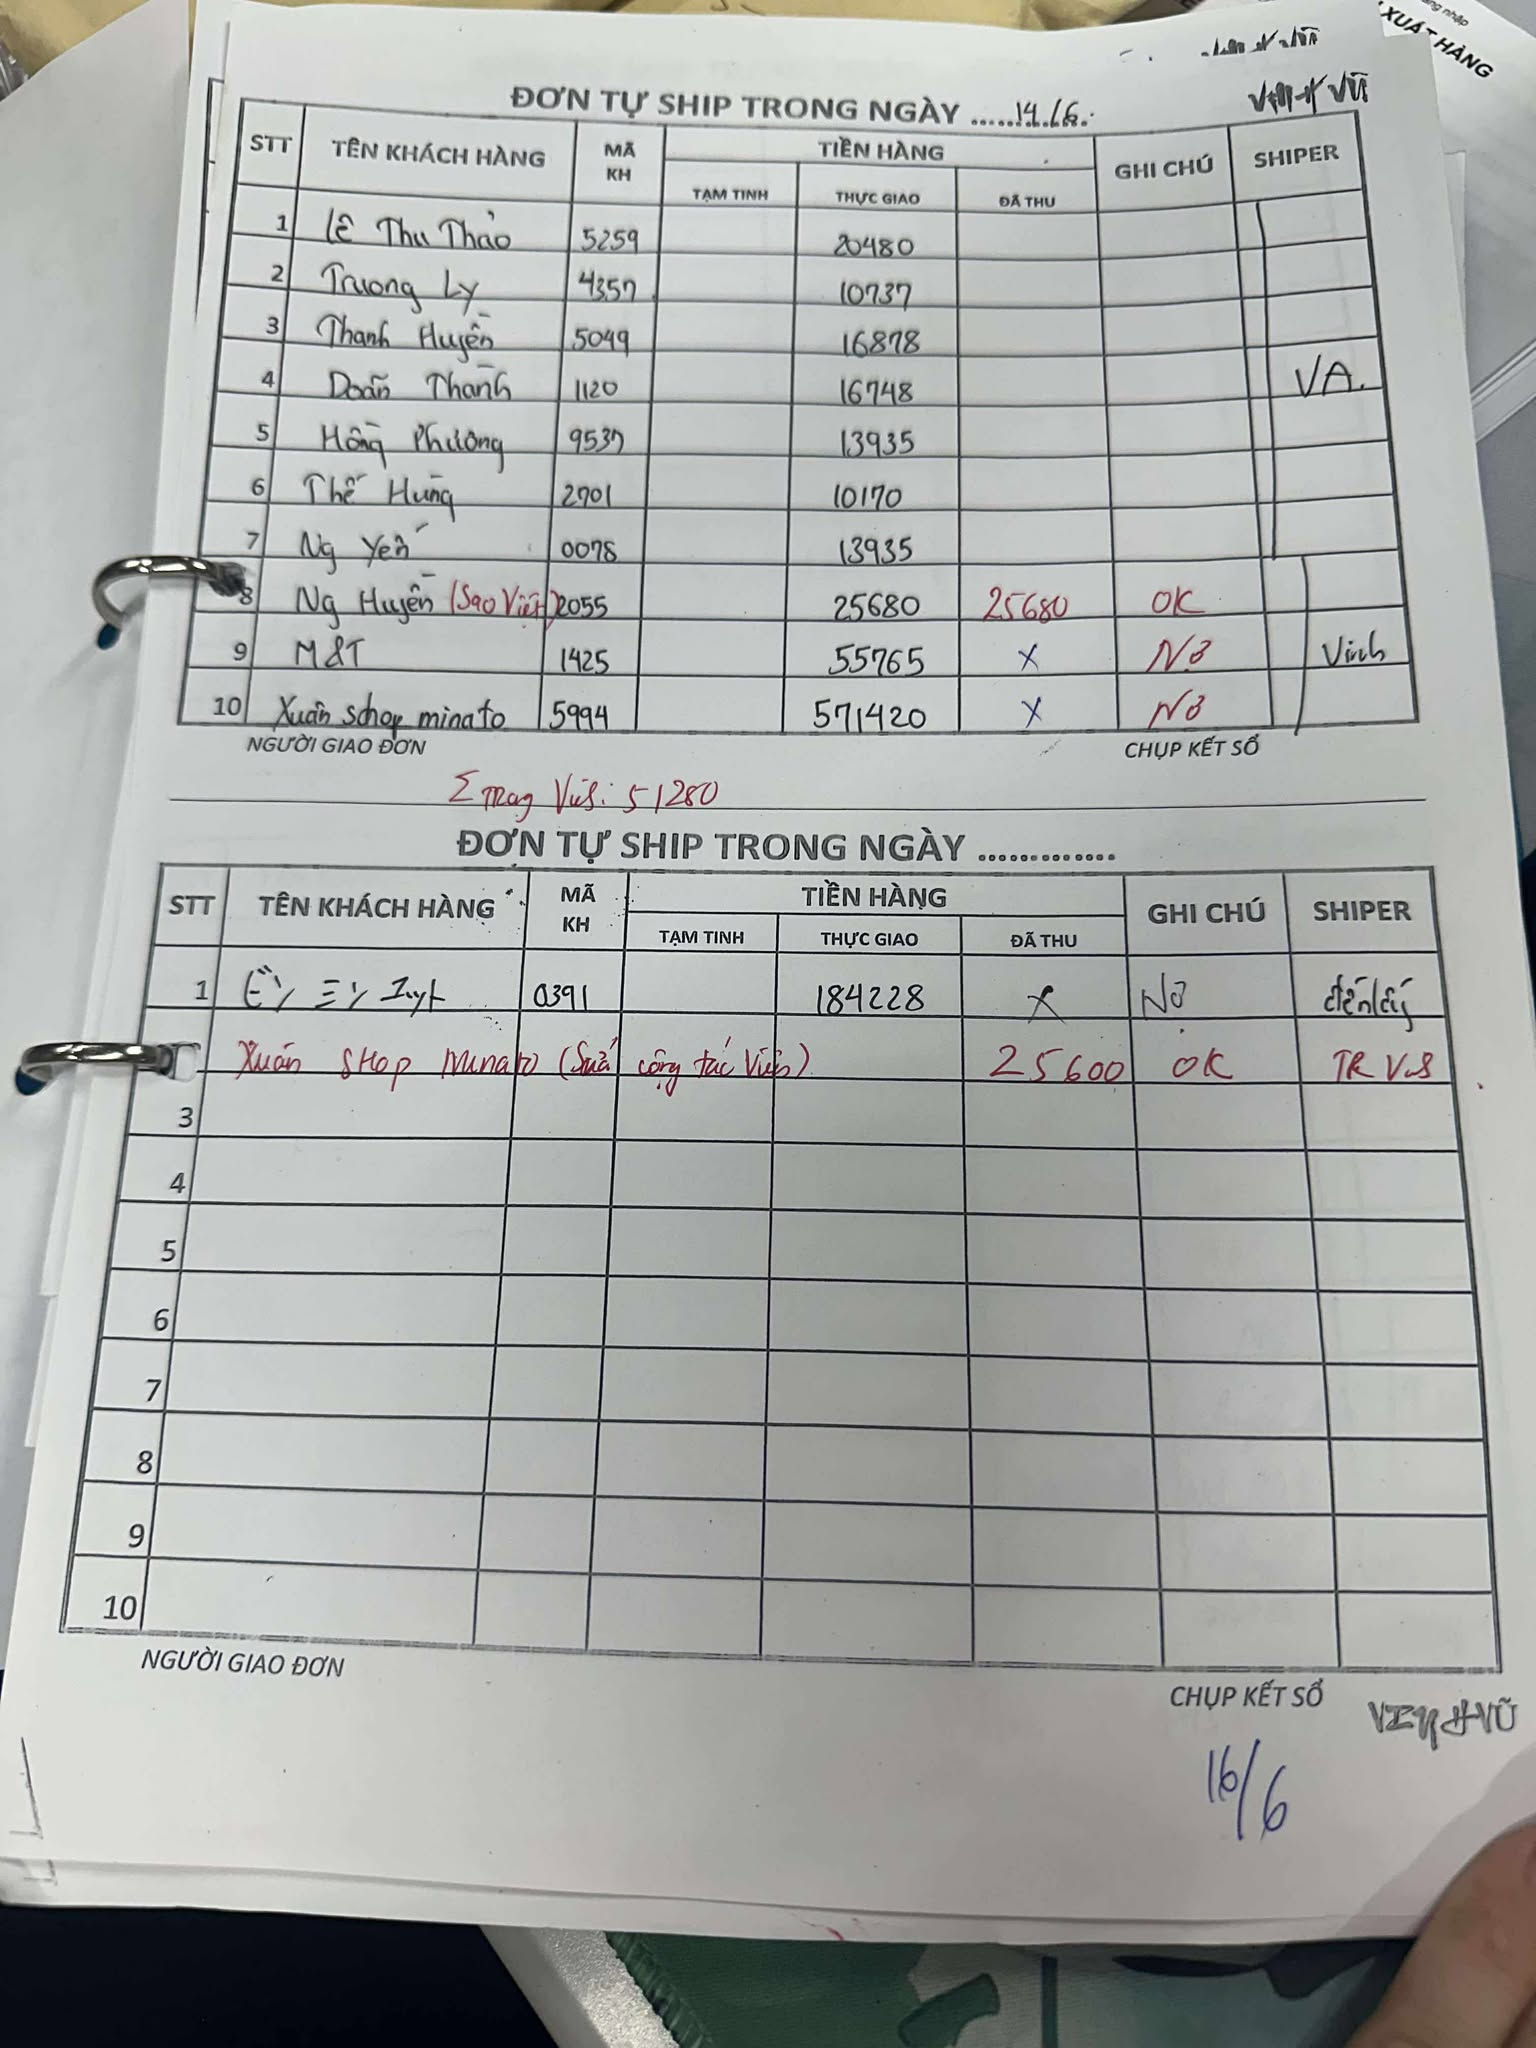 XUẤT HÀNG
ĐƠN TỰ SHIP TRONG NGÀY ......14./6.
STT TÊN KHÁCH HÀNG MÃ KH TIỀN HÀNG GHI CHÚ SHIPER
TẠM TINH THỰC GIAO ĐÃ THU
1 Lê Thu Thảo 5259 20480
2 Trương Ly 4357 10737
3 Thanh Huyền 5049 16878
4 Doãn Thanh 1120 16748 VA.
5 Hồng Phương 9537 13935
6 Thế Hưng 2701 10170
7 Ng Yến 0078 13935
8 Ng Huyền (Sao Việt) 2055 25680 25680 OK
9 M&T 1425 55765 x Nợ Vinh
10 Xuân Schop minato 5994 571420 x Nợ
NGƯỜI GIAO ĐƠN CHỤP KẾT SỔ
Σ 51280
ĐƠN TỰ SHIP TRONG NGÀY .............
STT TÊN KHÁCH HÀNG MÃ KH TIỀN HÀNG GHI CHÚ SHIPER
TẠM TINH THỰC GIAO ĐÃ THU
1 0391 184228 x Nợ đến lấy
Xuân SHop Minato 25600 OK
3
4
5
6
7
8
9
10
NGƯỜI GIAO ĐƠN
CHỤP KẾT SỔ
16/6